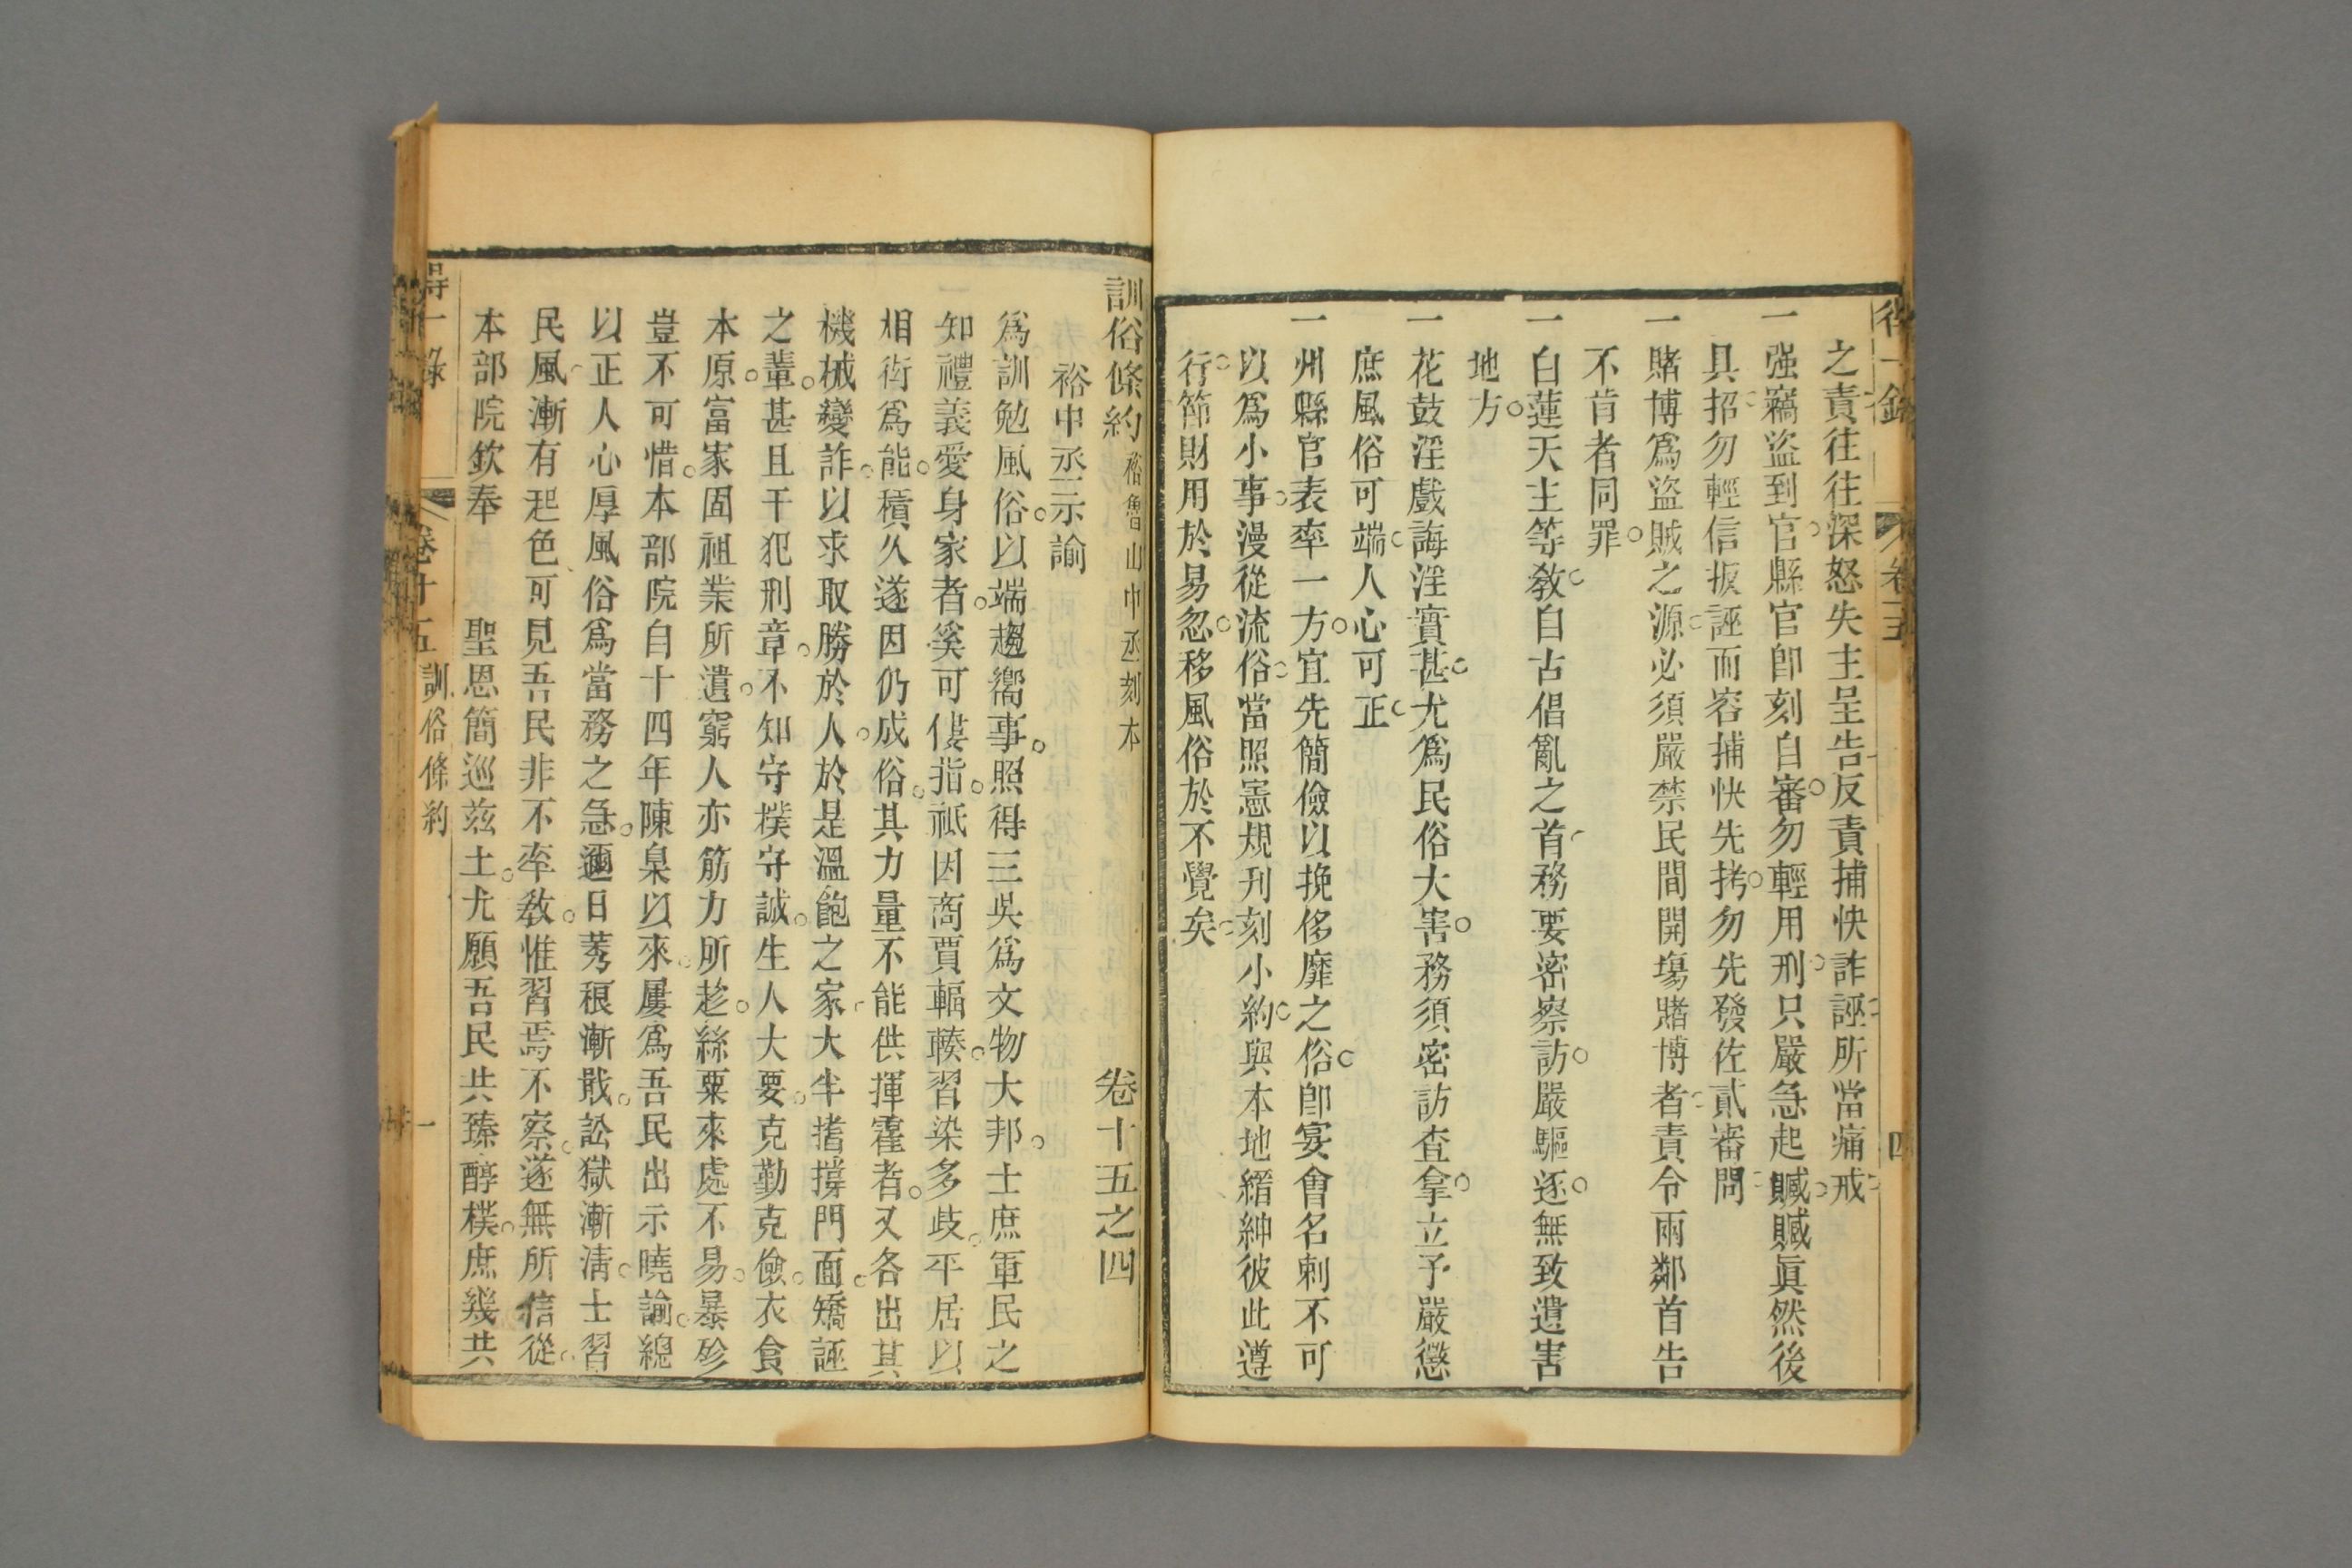 得一錄
卷十五
四
之責往往深怒失主呈告反責捕快詐誣所當痛戒
一强竊盜到官縣官卽刻自審勿輕用刑只嚴急起贓贓眞然後
具招勿輕信扳誣而容捕快先拷勿先發佐貳審問
一賭博爲盜賊之源必須嚴禁民間開塲賭博者責令兩鄰首告
不肯者同罪
一白蓮天主等敎自古倡亂之首務要密察訪嚴驅逐無致遺害
地方
一花鼓淫戲誨淫實甚尤爲民俗大害務須密訪查拿立予嚴懲
庶風俗可端人心可正
一州縣官表率一方宜先簡儉以挽侈靡之俗卽宴會名刺不可
以爲小事漫從流俗當照憲規刊刻小約與本地縉紳彼此遵
行節財用於易忽移風俗於不覺矣
訓俗條約 裕魯山中丞刻本 卷十五之四
裕中丞示諭
爲訓勉風俗以端趨嚮事照得三吳爲文物大邦士庶軍民之
知禮義愛身家者奚可僂指祗因商賈輻輳習染多歧平居以
相衒爲能積久遂因仍成俗其力量不能供揮霍者又各出其
機械變詐以求取勝於人於是溫飽之家大半撐撐門面矯誣
之輩甚且干犯刑章不知守樸守誠生人大要克勤克儉衣食
本原富家固祖業所遺窮人亦筋力所趁絲粟來處不易暴殄
豈不可惜本部院自十四年陳臬以來屢爲吾民出示曉諭總
以正人心厚風俗爲當務之急邇日莠稂漸戢訟獄漸淸士習
民風漸有起色可見吾民非不率敎惟習焉不察遂無所信從
本部院欽奉 聖恩簡巡茲土尤願吾民共臻醇樸庶幾共
得一錄
卷十五 訓俗條約
一